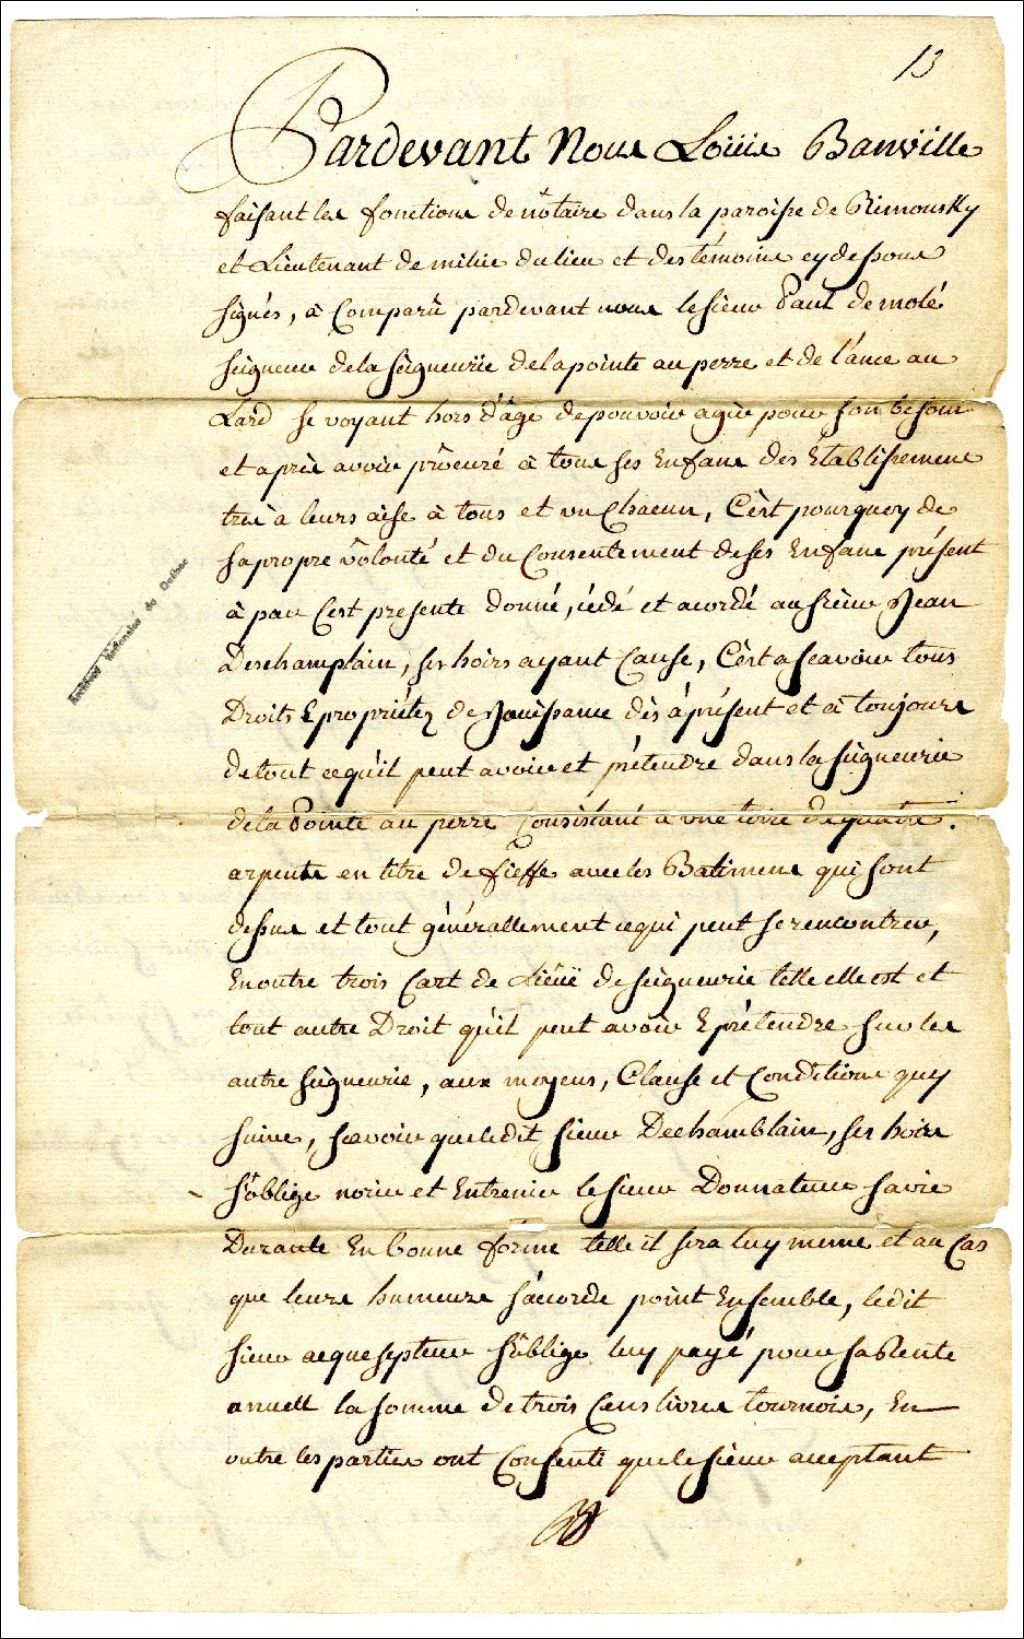 13
Pardevant Nous Loüis Banville
faisant les fonctions de nôtaire dans la paroisse de Rimousky
et Lieutenant de milice du lieu et des témoins cy dessous
signés, à Comparû pardevant nous le sieur Paul de molé
seigneur de la seigneurie de la pointe au perre et de l'ance au
Lard se voyant hors d'âge de pouvoir agir pour son besoin
et après avoir prôcuré à tous ses Enfans des Etablissemens
très à leurs aise à tous et un Chacun, C'èst pourquoy de
sa propre volonté et du Consentement de ses Enfans présent
à par C'est presente donné, cédé et acordé au sieur Jean
Deschamplain, ses hoirs ayant Cause, C'èst a scavoir tous
Droits & propriétez de Jouissance dès àprésent et à toujours
de tout ce qu'il peut avoir et prétendre dans la seigneurie
de la Pointe au perre Consistant a une terre de quatre
arpents en titre de fieffe avec les Batimens qui sont
dessus et tout générallement ce qui peut se rencontrer,
En outre trois Cart de Liëuë de seigneurie telle elle est et
tout autre Droit qu'il peut avoir & prétendre sur les
autre seigneurie, aux moyens, Clause et Conditions quy
suive, scavoir que ledit sieur Dechamblain, ses hoirs
s'oblige norir et Entrenir le sieur Donnateur sa vie
Durante En bonne forme telle il sera luy meme et au Cas
que leurs humeurs s'acorde point Ensemble, ledit
sieur acquesepteur s'ôblige luy payé pour sa Rente
anuell la somme de trois Cens livres tournois, En
outre les parties ont Consenti que le sieur aceptant
Archives Nationales du Québec